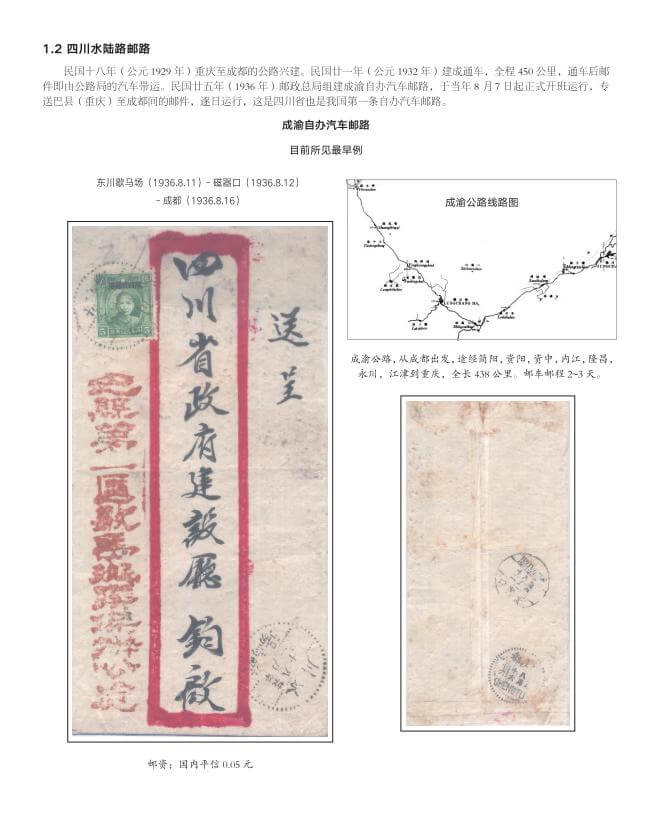 1.2 四川水陆路邮路
民国十八年（公元 1929 年）重庆至成都的公路兴建。民国廿一年（公元 1932 年）建成通车，全程 450 公里，通车后邮
件即由公路局的汽车带运。民国廿五年（1936 年）邮政总局组建成渝自办汽车邮路，于当年 8 月 7 日起正式开班运行，专
送巴县（重庆）至成都间的邮件，逐日运行，这是四川省也是我国第一条自办汽车邮路。
成渝自办汽车邮路
目前所见最早例
东川歇马场（1936.8.11）- 磁器口（1936.8.12）
- 成都（1936.8.16）
成渝公路线路图
成渝公路，从成都出发，途经简阳，资阳，资中，内江，隆昌，
永川，江津到重庆，全长 438 公里。邮车邮程 2~3 天。
送呈
四川省政府建設廳 鈞啟
5 5
CHENGTU
邮资：国内平信 0.05 元